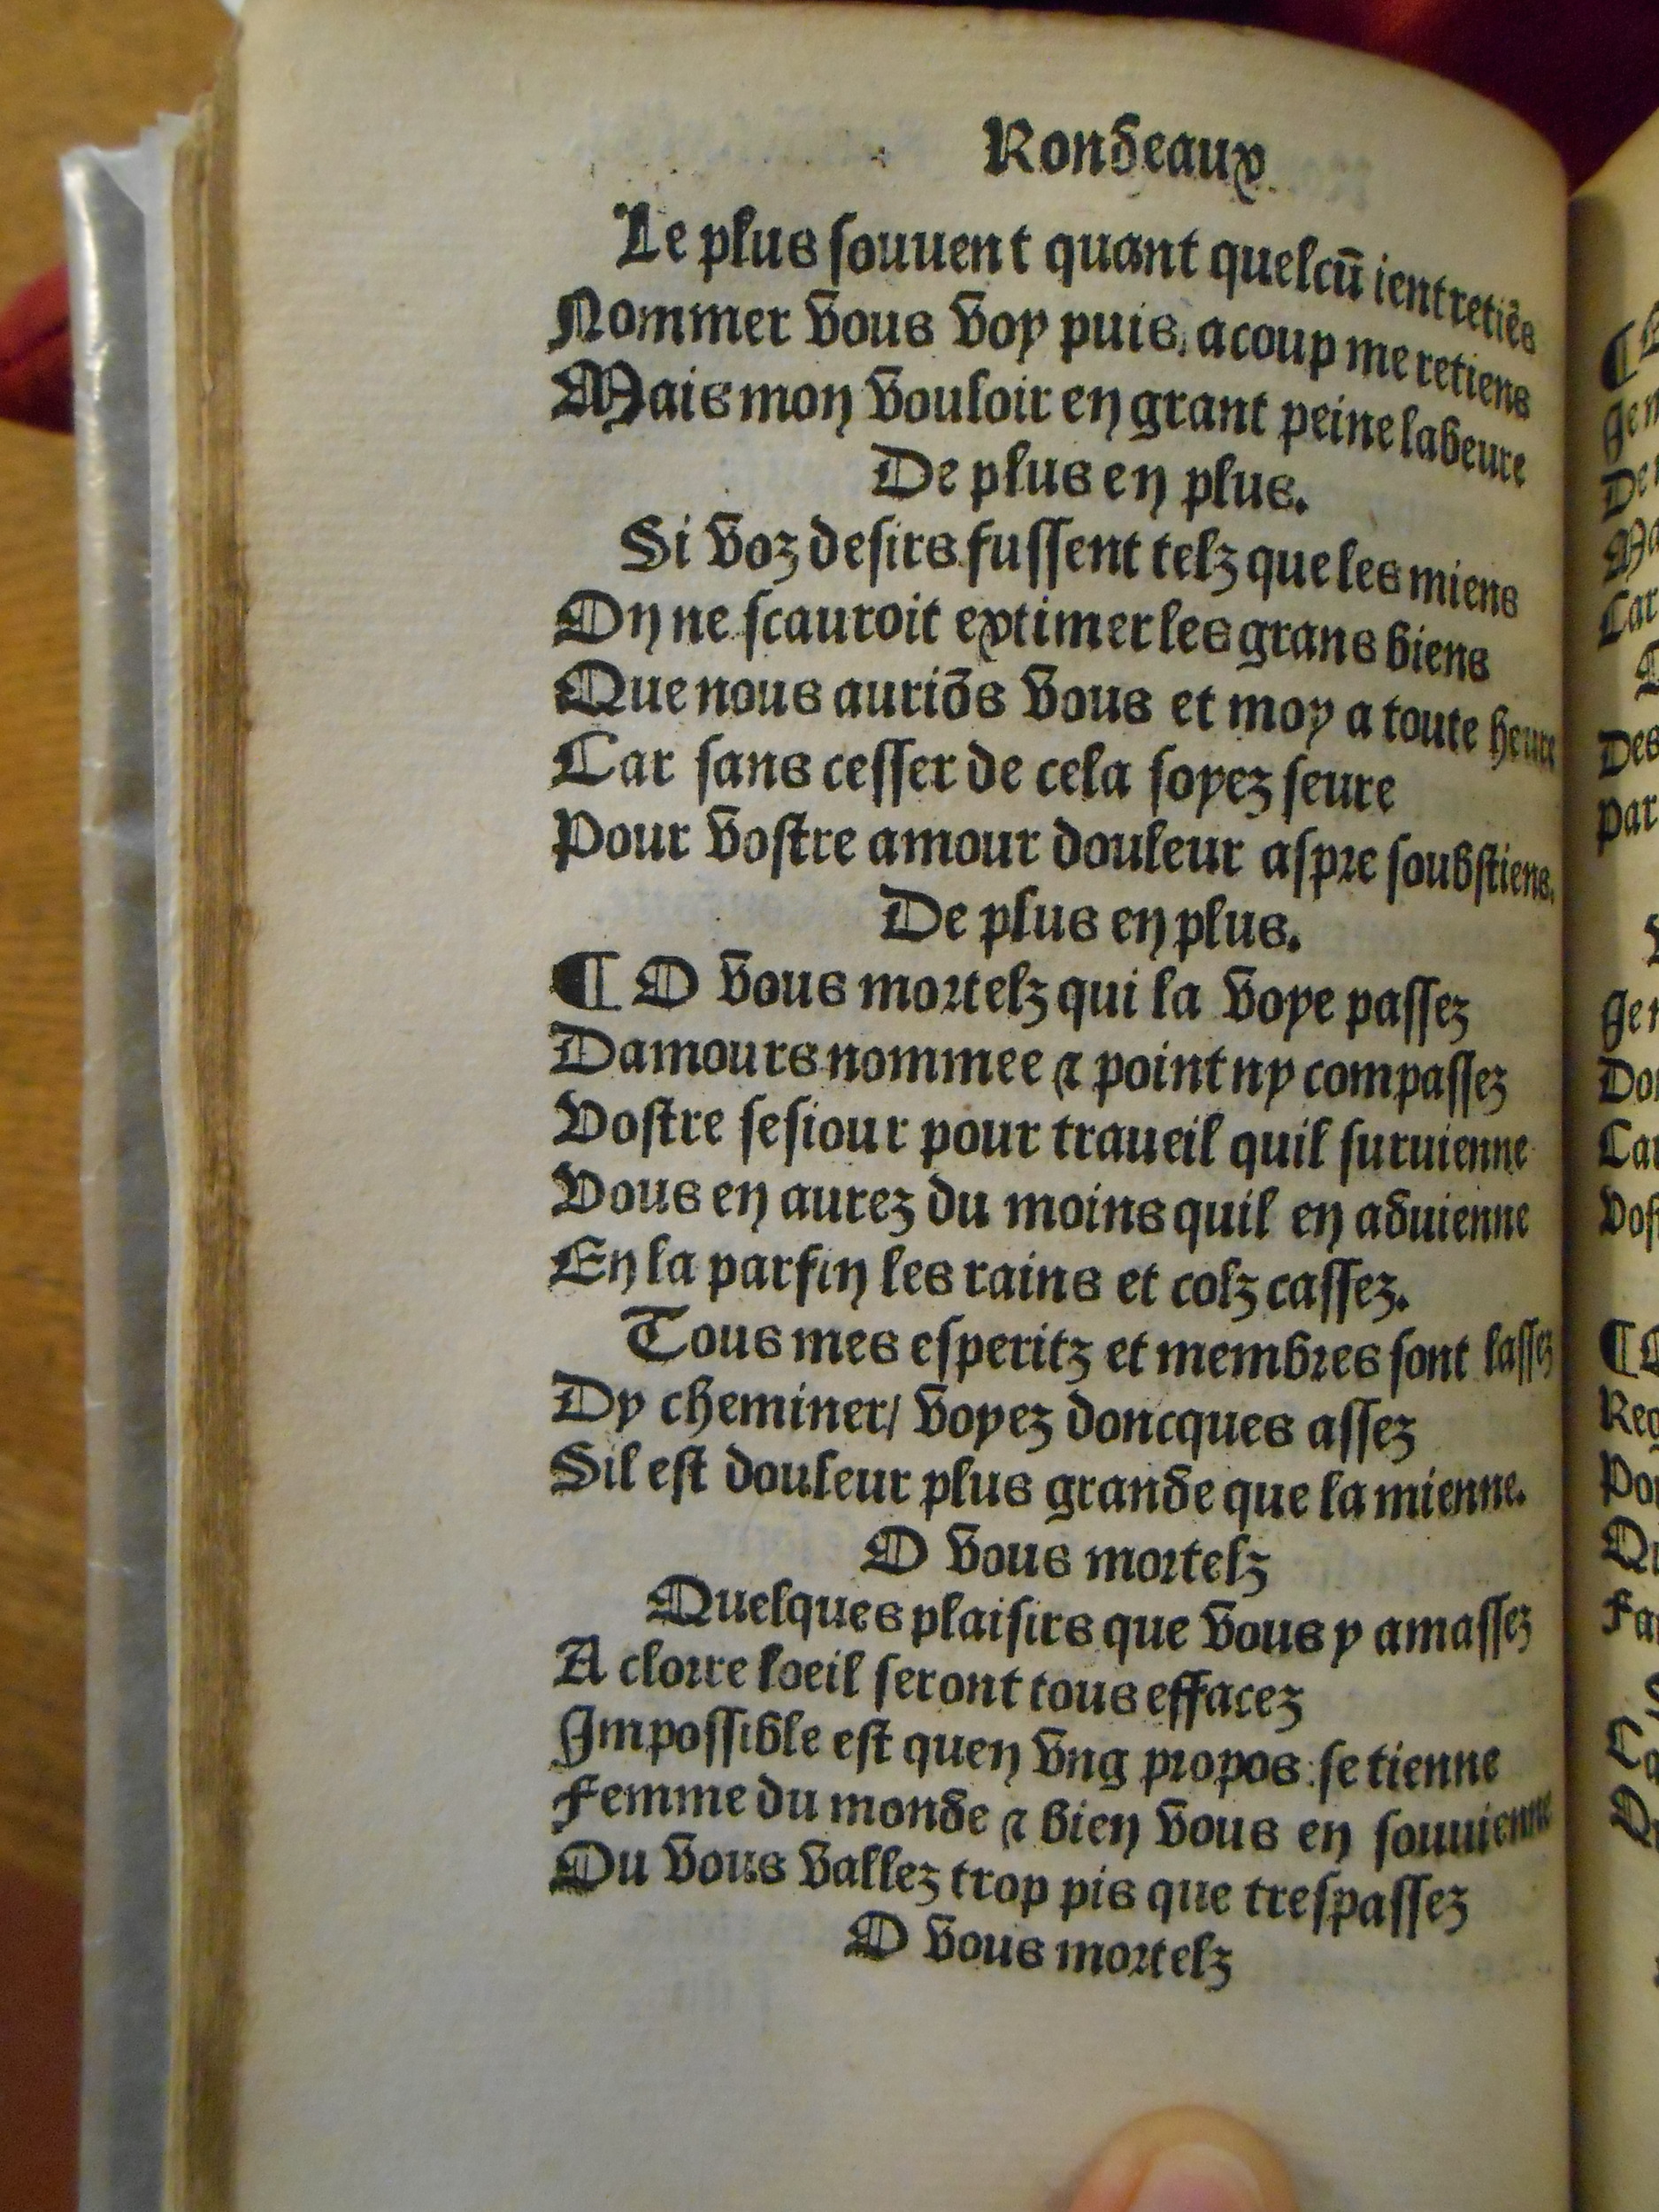 Rondeaux
Le plus souuent quant quelcū ientretiēs
Nommer vous voy puis, acoup me retiens
Mais mon vouloir en grant peine labeure
De plus en plus.
Si voz desirs fussent telz que les miens
On ne scauroit extimer les grans biens
Que nous auriōs vous et moy a toute heure
Car sans cesser de cela soyez seure
Pour vostre amour douleur aspre soubstiens.
De plus en plus.
¶ O vous mortelz qui la voye passez
Damours nommee ⁊ point ny compassez
Vostre sesiour pour traueil quil suruienne
Vous en aurez du moins quil en aduienne
En la parfin les rains et colz cassez.
Tous mes esperitz et membres sont lassez
Dy cheminer/ voyez doncques assez
Sil est douleur plus grande que la mienne.
O vous mortelz
Quelques plaisirs que vous y amassez
A clorre loeil seront tous effacez
Impossible est quen vng propos se tienne
Femme du monde ⁊ bien vous en souuienne
Ou vous vallez trop pis que trespassez
O vous mortelz